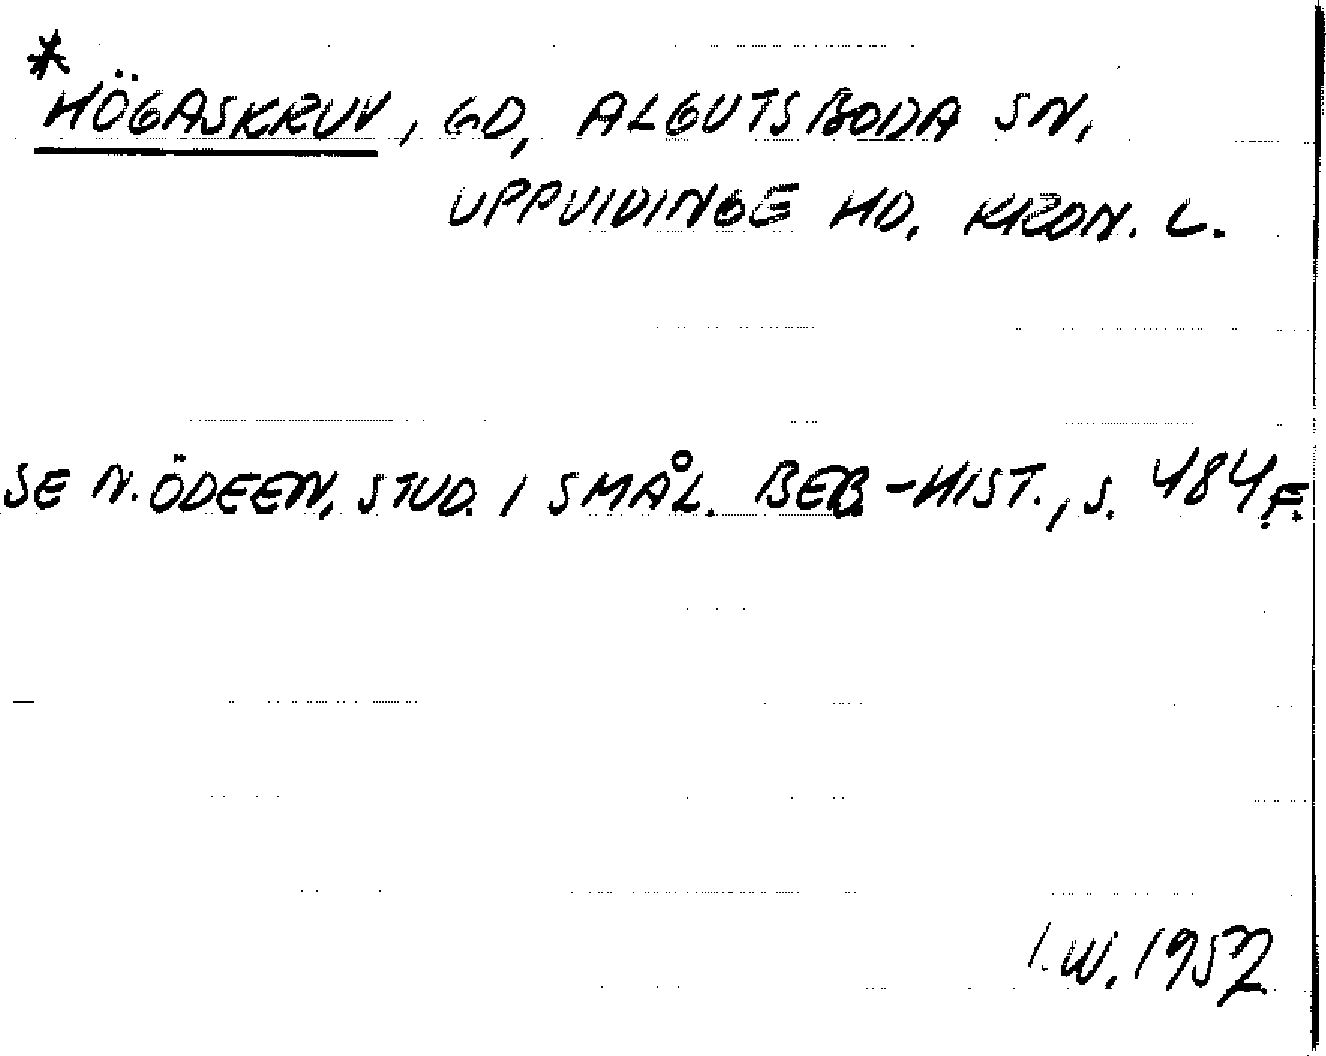 *
HÖGASKRUV, GD, ALGUTSBODA SN,
UPPVIDINGE HD, KRON. L.
SE N. ÖDEEN, STUD. I SMÅL. BEB.-HIST., S. 484 F.
I.W. 1952